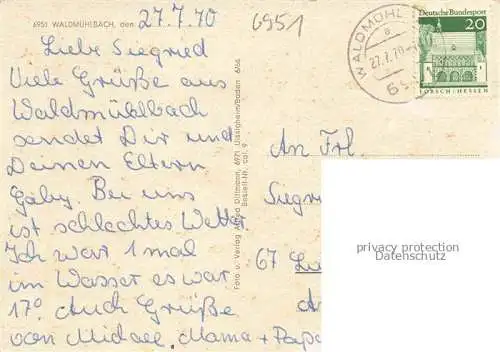 6951 WALDMÜHLBACH, den 27.7.70
6951
Liebe Siegried
Viele Grüße aus
Waldmühlbach
sendet Dir und
Deinen Eltern
Gaby. Bei uns
ist schlechtes Wetter.
Ich war 1 mal
im Wasser es war
17° Auch Grüße
von Michael, Mama + Papa
Foto u. Verlag Alfred Dittmann, 6971 Uissigheim/Baden 606
Bestell-Nr. col. 9
WALDMÜHL
a
27.7.70
69
Deutsche Bundespost
20
LORSCH · HESSEN
An Frl.
Siegr
67
privacy protection
Datenschutz